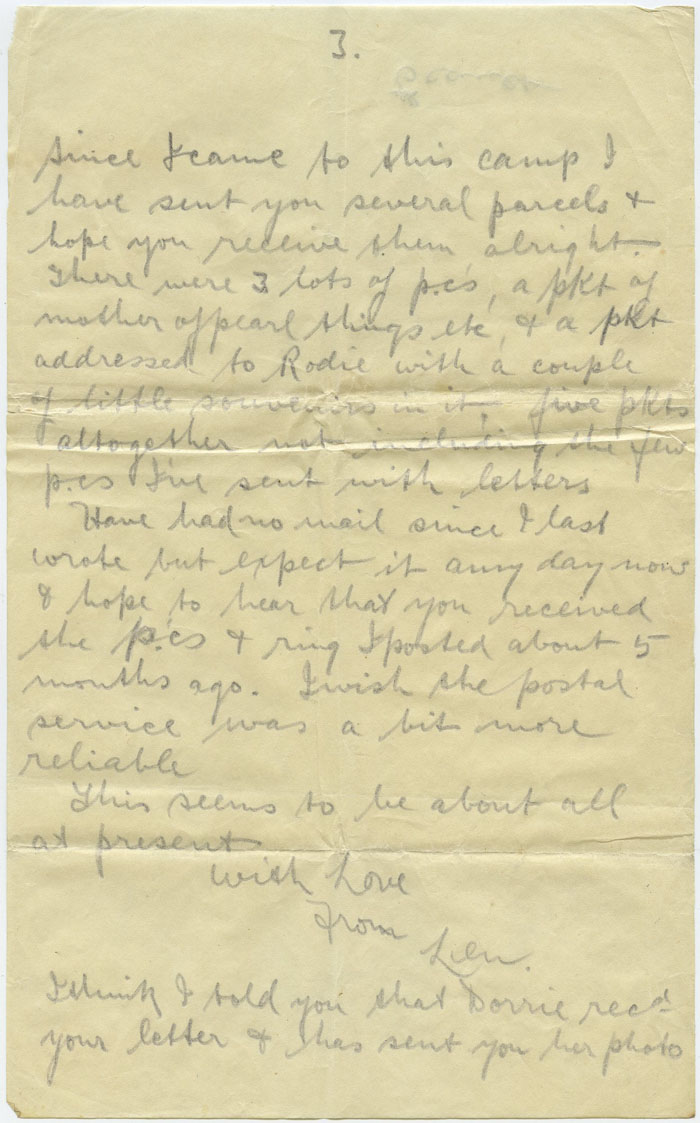 3.
Since I came to this camp I
have sent you several parcels &
hope you receive them alright.
There were 3 lots of p.c's, a pkt of
mother of pearl things etc, & a pkt
addressed to Rodie with a couple
of little souvenirs in it, five pkts
altogether not including the few
p.cs I've sent with letters
Have had no mail since I last
wrote but expect it any day now
& hope to hear that you received
the p.c's & ring I posted about 5
months ago. I wish the postal
service was a bit more
reliable
This seems to be about all
at present
With Love
From
Len.
I think I told you that Dorrie recd
your letter & has sent you her photo